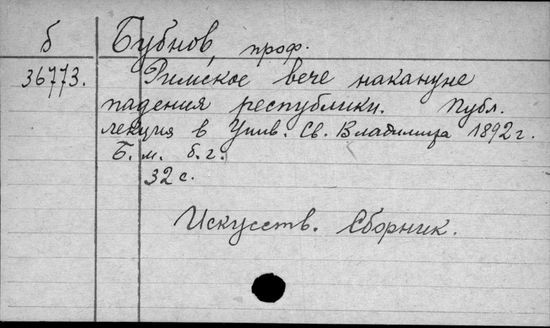 б Бубнов, проф.
36773. Римское вече накануне
падения республики. Публ.
лекция в Унив. Св. Владимира 1892 г.
Б. м. б. г.
32 с.
Искусств. Сборник.